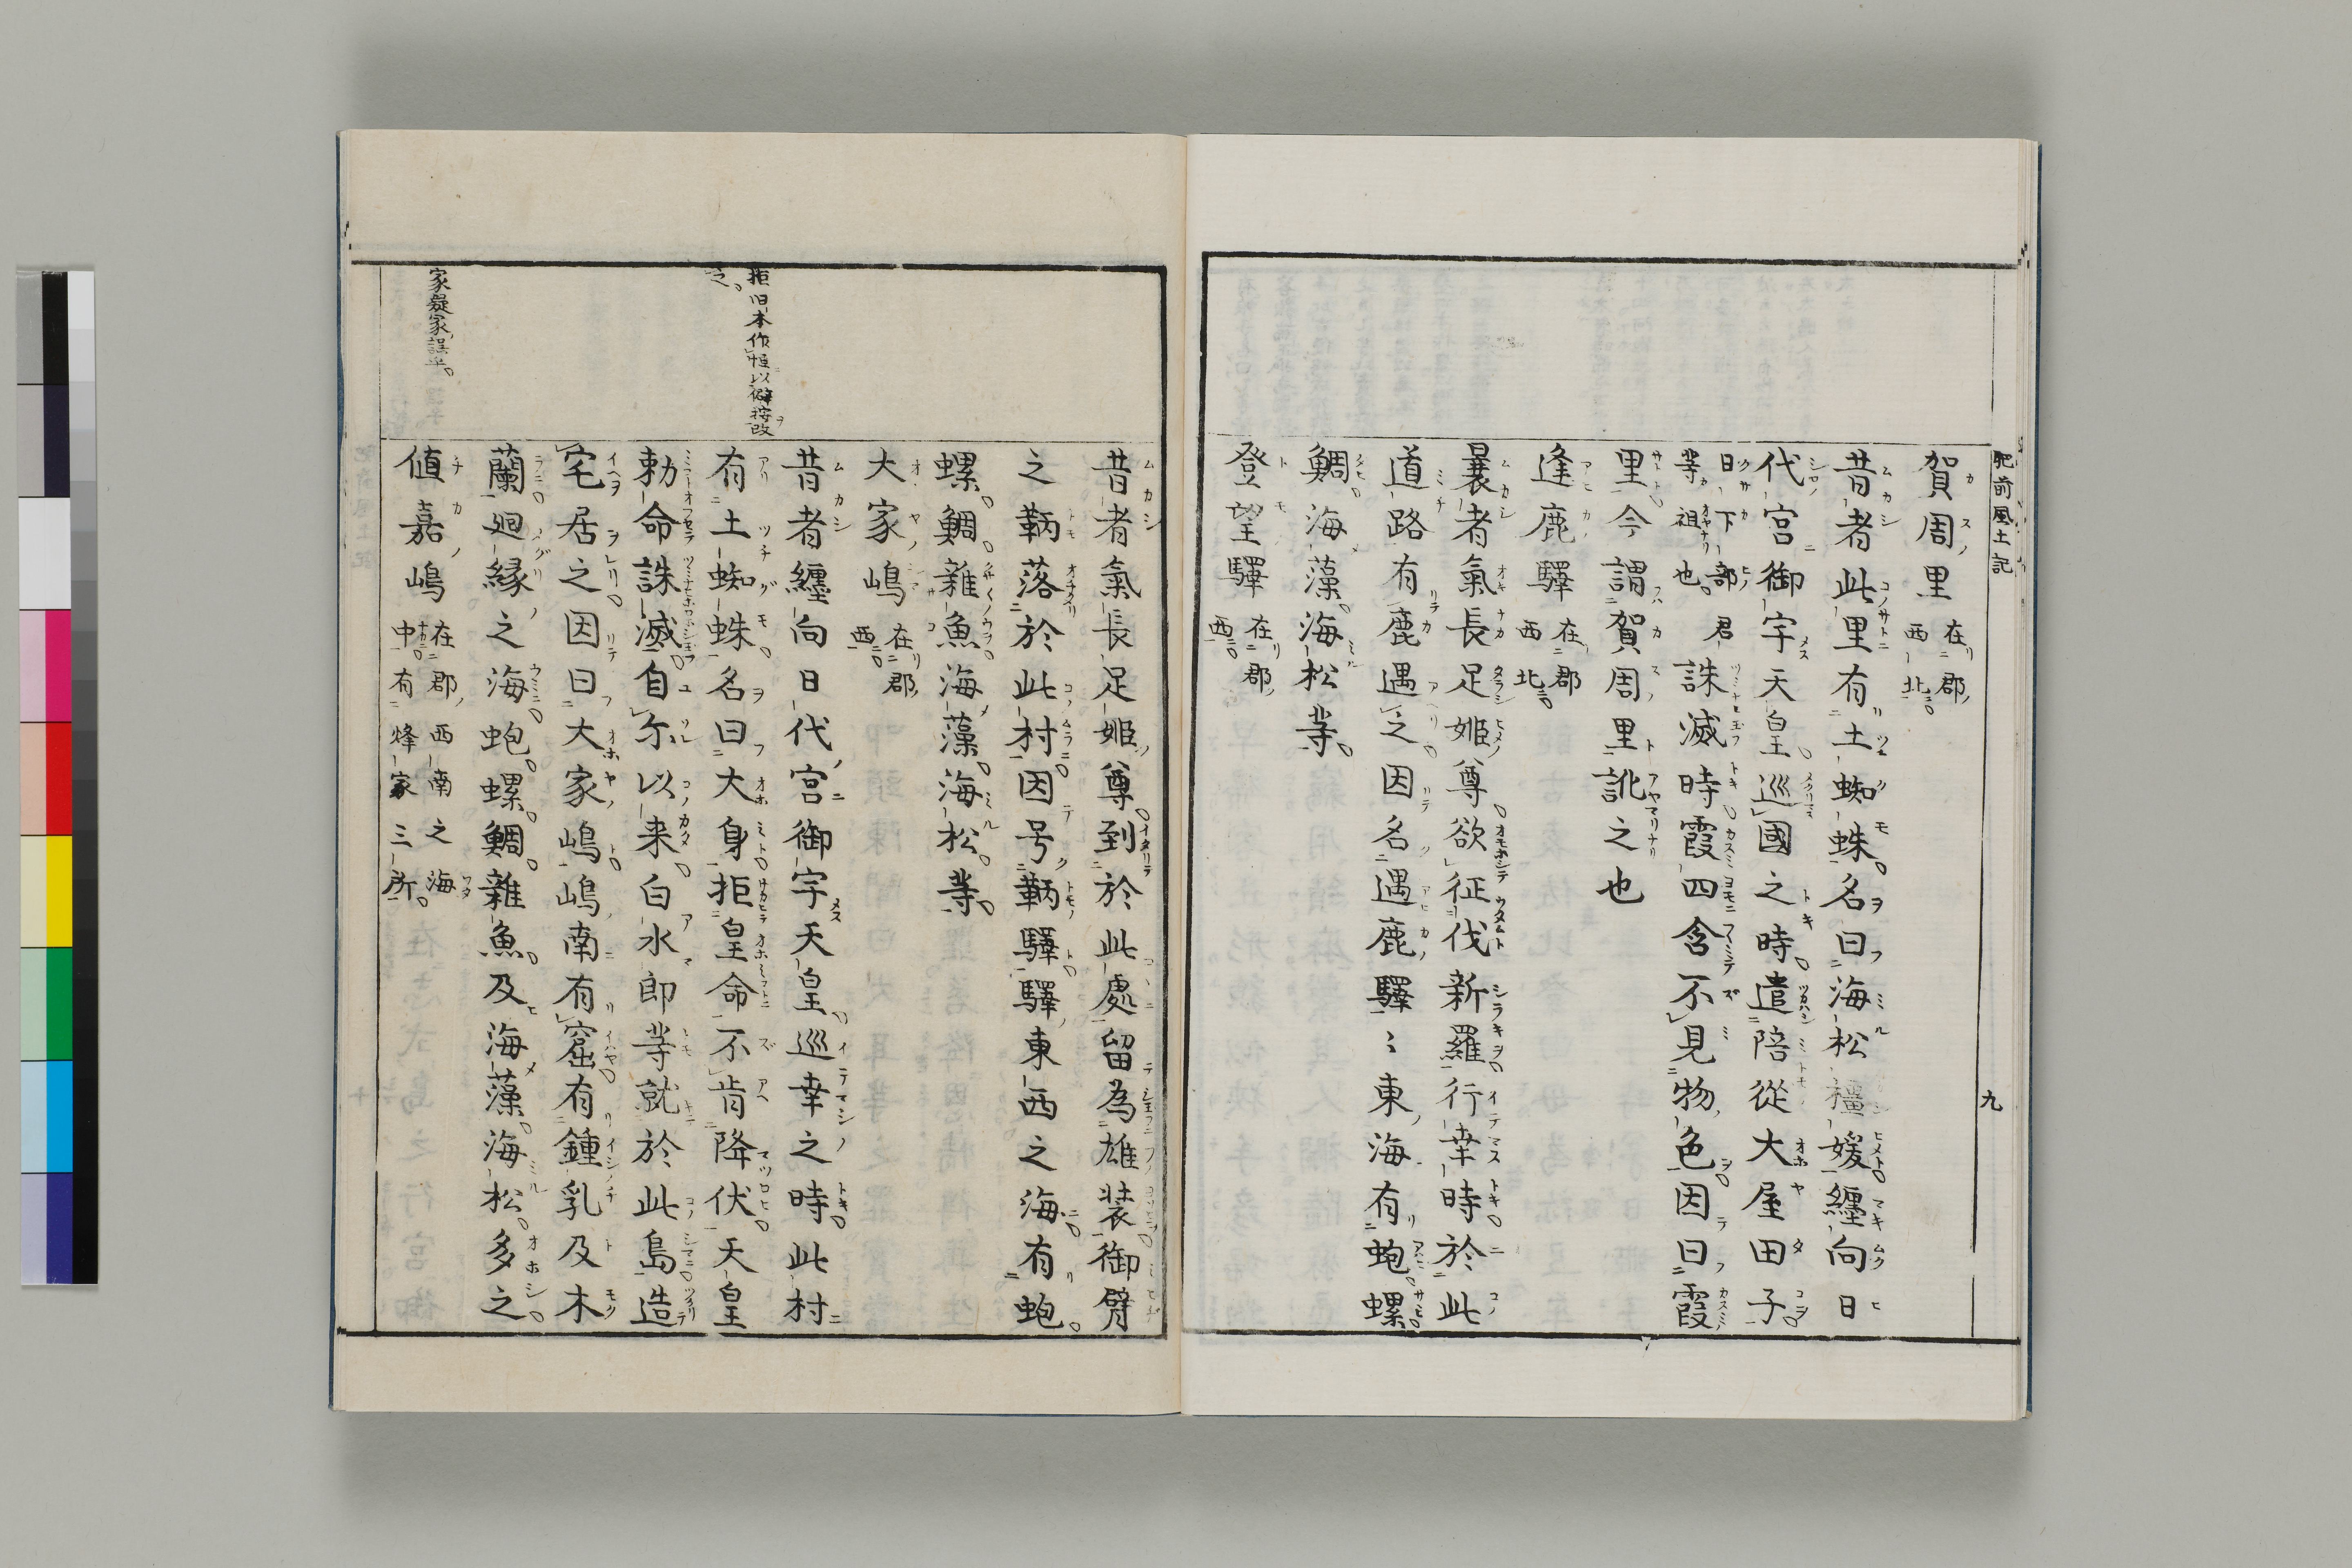 肥前風土記
九
賀周里 在郡西北
昔者此里有土蜘蛛名曰海松橿媛纏向日
代宮御宇天皇巡國之時遣陪從大屋田子
日下部君等祖也 誅滅時霞四含不見物色因曰霞
里今謂賀周里訛之也
逢鹿驛 在郡西北
曩者氣長足姫尊欲征伐新羅行幸時於此
道路有鹿遇之因名遇鹿驛〻東海有蚫螺
鯛海藻海松等
登望驛 在郡西
昔者氣長足姫尊到於此處留為雄装御臂
之鞆落於此村因号鞆驛驛東西之海有蚫
螺鯛雜魚海藻海松等
大家嶋 在郡西
昔者纏向日代宮御宇天皇巡幸之時此村
有土蜘蛛名曰大身拒皇命不肯降伏天皇
勅命誅滅自尓以来白水郎等就於此島造
宅居之因曰大家嶋嶋南有窟有鍾乳及木
蘭廻縁之海蚫螺鯛雜魚及海藻海松多之
値嘉嶋 在郡西南之海中有烽家三所
拒旧本作恒以僻按改
之
家疑家誤乎